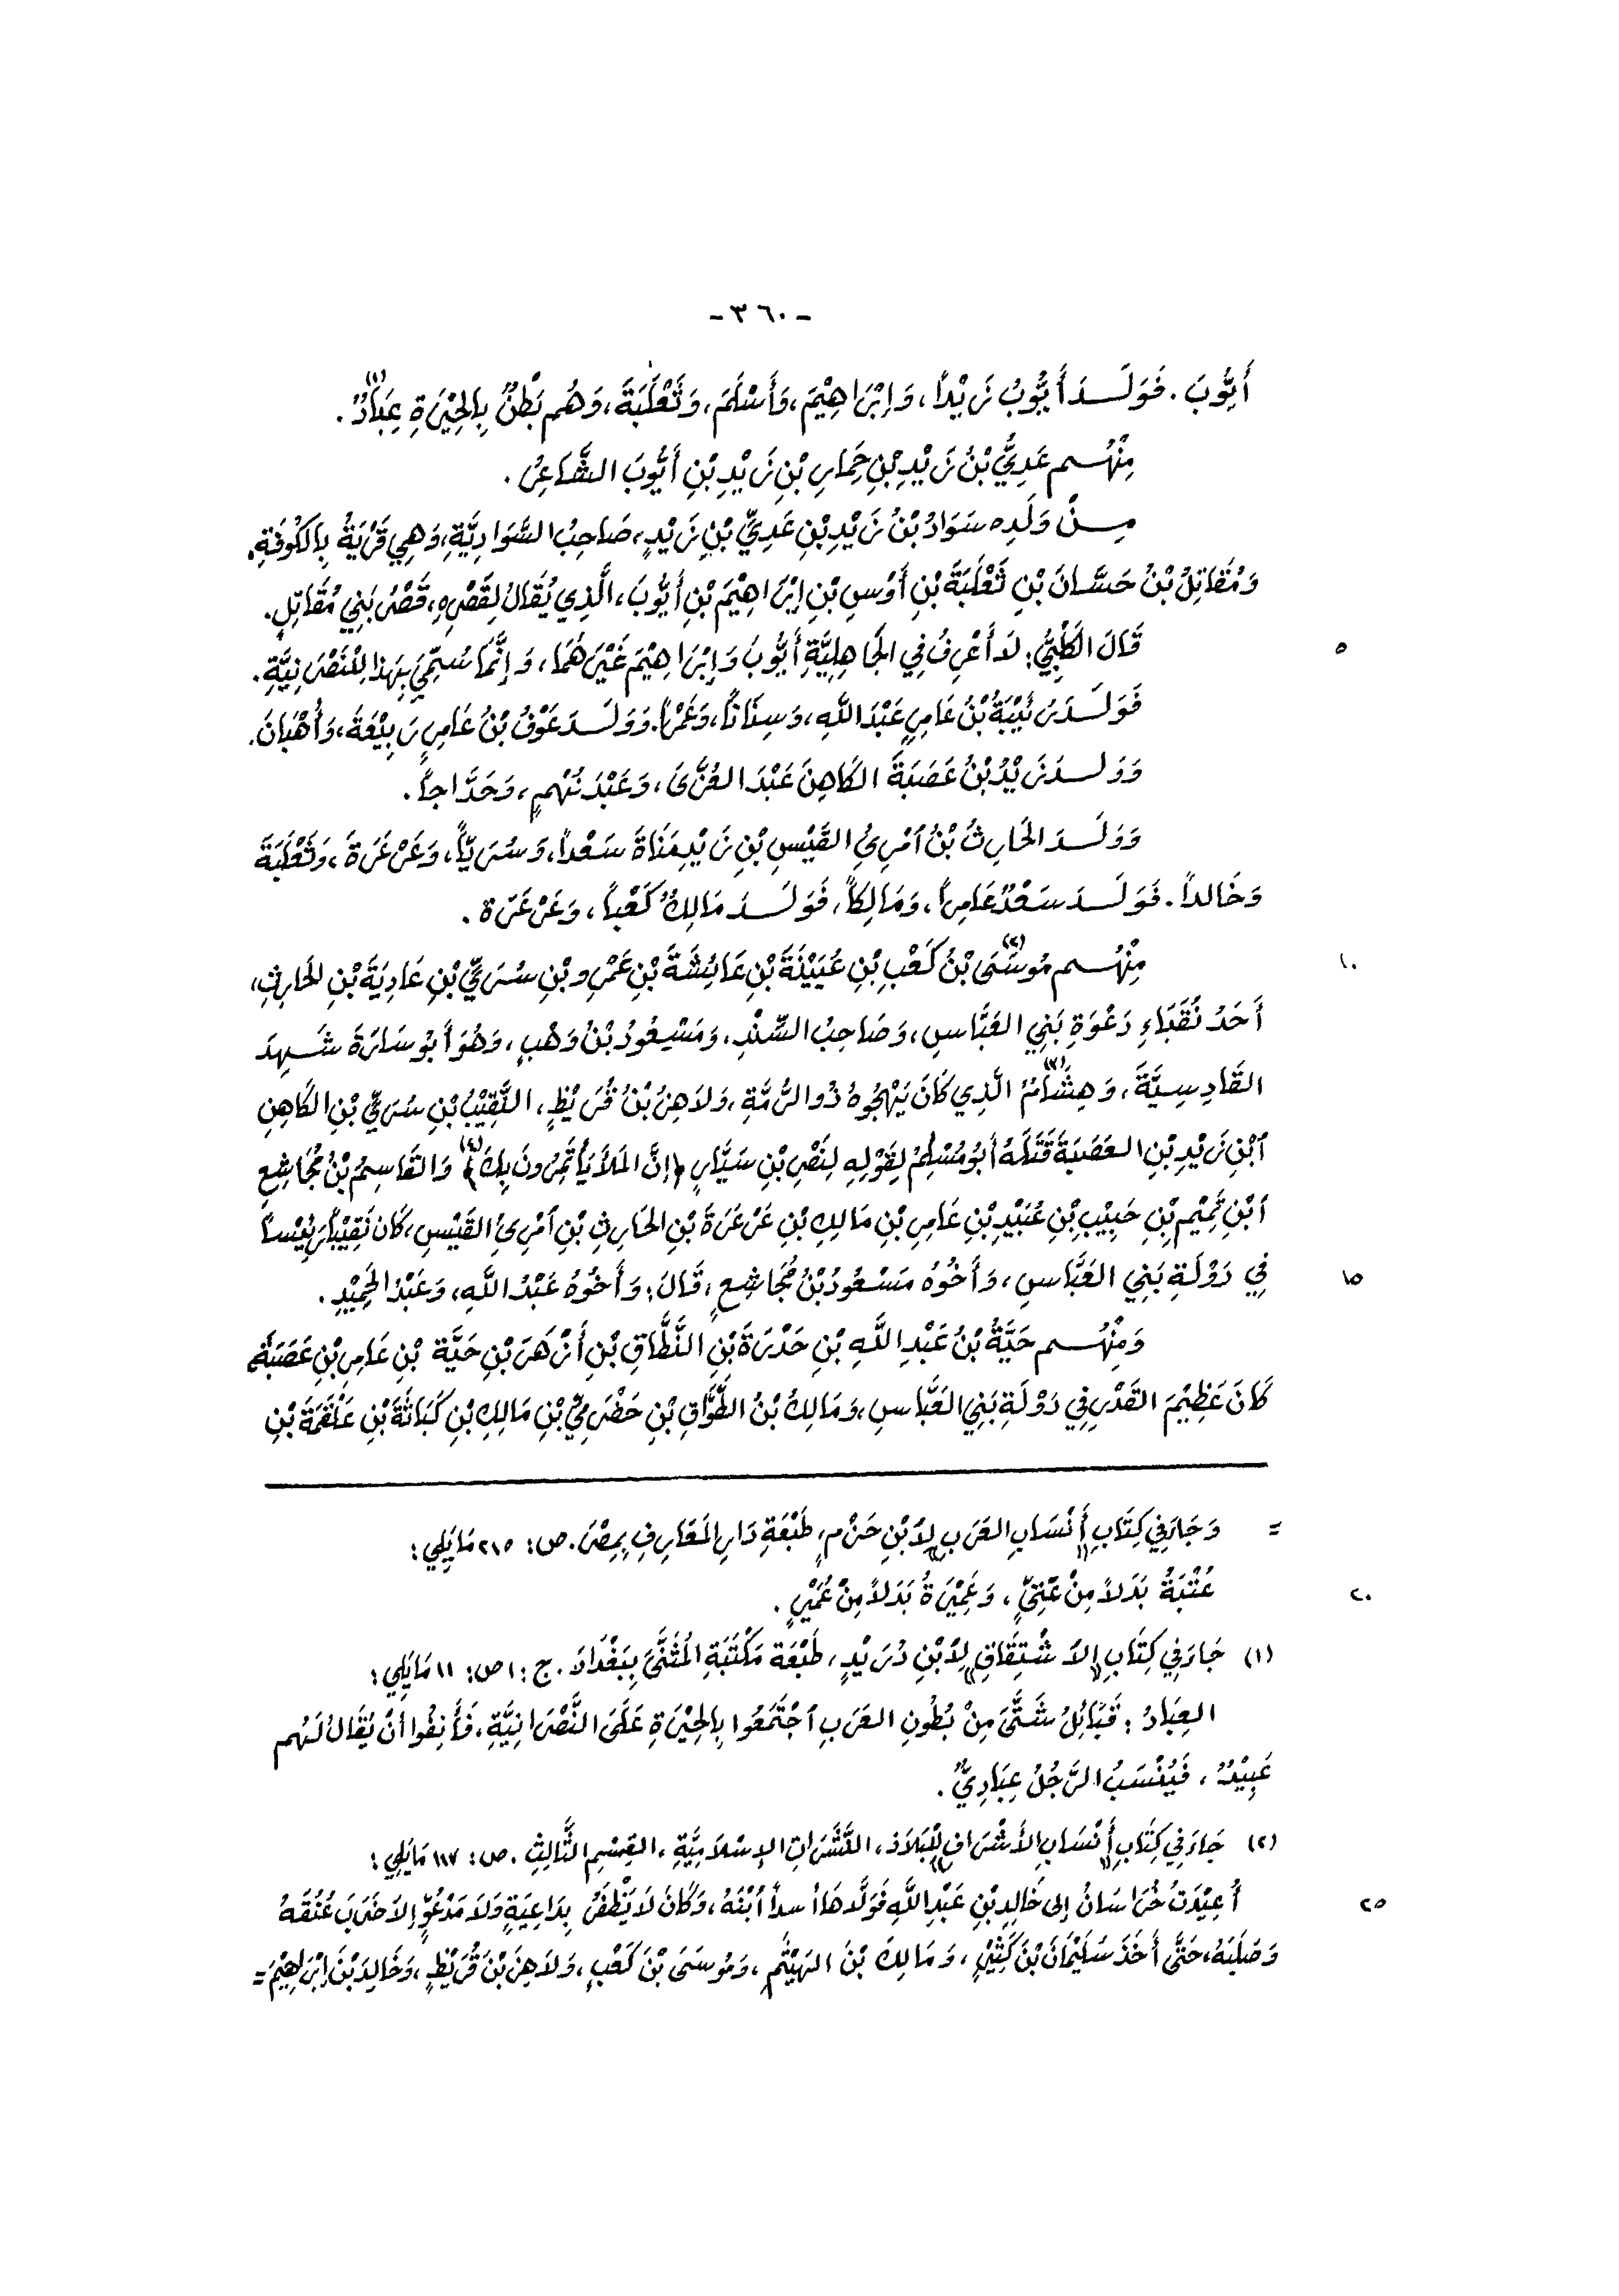 - ٣٦٠ -
أَيُّوبَ . فَوَلَـدَ أَيُّوبُ زَيْداً، وَإِبْرَاهِيْمَ، وَأَسْلَمَ، وَثَعْلَبَةَ، وَهُم بَطْنٌ بِالحِيْرَةِ عِبَادٌ(١).
مِنْهُـم عَدِيُّ بْنُ زَيْدِ بْنِ حِمَارِ بْنِ زَيْدِ بْنِ أَيُّوبَ الشَّاعِرُ .
مِـنْ وَلَدِه سَوَادُ بْنُ زَيْدِ بْنِ عَدِيِّ بْنِ زَيْدٍ، صَاحِبُ السَّوَادِيَّةِ، وَهِي قَرْيَةُ بِالكُوفَةِ،
وَمُقَاتِلُ بْنُ حَسَّانَ بْنِ ثَعْلَبَةَ بْنِ أَوْسِ بْنِ إِبْرَاهِيْمَ بْنِ أَيُّوبَ، الَّذِي يُقَالُ لِقَصْرِهِ، قَصْرُ بَنِي مُقَاتِلٍ.
٥ قَالَ الكَلْبِيُّ: لاَ أَعْرِفُ فِي الجَاهِلِيَّةِ أَيُّوبَ وَإِبْرَاهِيْمَ غَيْرَهُمَا، وَإِنَّمَا سُمِّيَ بِهَذا لِلنَّصْرَنِيَّةِ.
فَوَلَـدَ رُبَيْبَةُ بْنُ عَامِرٍ عَبْدَ اللَّهِ، وَسِنَاناً، وَعَمْراً. وَوَلَـدَ عَوْفُ بْنُ عَامِرٍ رَبِيْعَةَ، وَأُهْبَانَ.
وَوَلَـدَ زَيْدُ بْنُ عَصَبَةَ الكَاهِنَ عَبْدَ العُزَّى، وَعَبْدَ نُهْمٍ، وَحَدَّاجاً.
وَوَلَـدَ الحَارِثُ بْنُ ٱمْرِئِ القَيْسِ بْنِ زَيْدِ مَنَاةَ سَعْداً، وَسُرَيّاً، وَعَرْعَرَةَ، وَثَعْلَبَةَ
وَخَالداً. فَوَلَـدَ سَعْدٌ عَامِراً، وَمَالِكاً، فَوَلَـدَ مَالِكٌ كَعْباً، وَعَرْعَرَة .
١٠ مِنْهُـم مُوسَى(٢) بْنُ كَعْبِ بْنِ عُيَيْنَةَ بْنِ عَائِشَةَ بْنِ عَمْرِو بْنِ سُرَيِّ بْنِ عَادِيَةَ بْنِ الحَارِثِ،
أَحَدُ نُقَبَاءِ دَعْوَةِ بَنِي العَبَّاسِ، وَصَاحِبُ السِّنْدِ، وَمَسْعُودُ بْنُ وَهْبٍ، وَهُوَ أَبُو سَارَةَ شَـهِدَ
القَادِسِيَّةَ، وَهِشَامُ(٣) الَّذِي كَانَ يَهْجُوهُ ذُو الرُّمَّةِ، وَلاَهِزُ بْنُ قُرَيْظٍ، النَّقِيْبُ بْنِ سُرَيِّ بْنِ الكَاهِنِ
ٱبْنِ زَيْدِ بْنِ العَصَبَةَ قَتَلَهُ أَبُو مُسْلِمٍ لِقَوْلِهِ لِنَصْرِ بْنِ سَيَّارٍ ﴿إِنَّ المَلأَ يَأْتَمِرُونَ بِكَ﴾(٤) وَالقَاسِمُ بْنُ مُجَاشِعِ
ٱبْنِ تَمِيْمِ بْنِ حَبِيْبِ بْنِ عُبَيْدِ بْنِ عَامِرِ بْنِ مَالِكِ بْنِ عَرْعَرَةَ بْنِ الحَارِثِ بْنِ ٱمْرِئِ القَيْسِ، كَانَ نَقِيْباً رَئِيْساً
١٥ فِي دَوْلَةِ بَنِي العَبَّاسِ، وَأَخُوهُ مَسْعُودُ بْنُ مُجَاشِعٍ، قَالَ: وَأَخُوهُ عَبْدُ اللَّهِ، وَعَبْدُ الحَمِيْدِ .
وَمِنْهُـم حَيَّةُ بْنُ عَبْدِ اللَّهِ بْنِ حَدْرَةَ بْنِ النَّطَّاقِ بْنِ أَزْهَرَ بْنِ حَيَّة بْنِ عَامِرِ بْنِ عَصَبَةَ،
كَانَ عَظِيْمَ القَدْرِ فِي دَوْلَةِ بَنِي العَبَّاسِ، وَمَالِكُ بْنُ الطَّوَّافِ بْنِ حَضْرَمِيِّ بْنِ مَالِكِ بْنِ كَبَاثَةَ بْنِ عَلْقَمَةَ بْنِ
= وَجَاءَ فِي كِتَابِ أَنْسَابِ العَرَبِ لاِبْنِ حَزْمٍ، طَبْعَةِ دَارِ المَعَارِفِ بِمِصْرَ. ص: ٢١٥ مَا يَلِي:
٢٠ عُتْبَةُ بَدَلاً مِنْ عَنْزِيٍّ، وَعَمِيْرَةُ بَدَلاً مِنْ عُمَيْرٍ .
(١) جَاءَ فِي كِتَابِ الاشْتِقَاقِ لاِبْنِ دُرَيْدٍ، طَبْعَة مَكْتَبَةِ المُثَنَّى بِبَغْدَادَ. ج: ١ ص: ١١ مَا يَلِي:
العِبَادُ: قَبَائِلُ شَتَّى مِنْ بُطُونِ العَرَبِ ٱجْتَمَعُوا بِالحِيْرَةِ عَلَى النَّصْرَانِيَّةِ، فَأَنِفُوا أَنْ يُقَالُ لَهُم
عَبِيْدٌ، فَيُنْسَبُ الرَّجُلُ عِبَادِيٌّ .
(٢) جَاءَ فِي كِتَابِ أَنْسَابِ الأَشْرَافِ لِلْبَلاَذ، النَّشَرَاتِ الإِسْلاَمِيَّةِ، القِسْمِ الثَّالِثِ. ص: ١١٧ مَا يَلِي:
٢٥ أُعِيْدَتْ خُرَاسَانُ إِلى خَالِدِ بْنِ عَبْدِ اللَّهِ فَوَلَّاهَا أسداً ٱبْنَهُ، وَكَانَ لاَ يَظْفَرُ بِدَاعِيَةٍ وَلاَ مَدْعُوٍّ إِلاَ ضَرَبَ عُنُقَهُ
وَصَلَبَهُ، حَتَّى أَخَذَ سُلَيْمَانَ بْنَ كَثِيْرٍ، وَمَالِكَ بْنَ الهَيْثَمِ، وَمُوسَى بْنَ كَعْبٍ، وَلاَهِزَ بْنَ قُرَيْظٍ، وَخَالِدَ بْنَ إِبْرَاهِيْمَ =